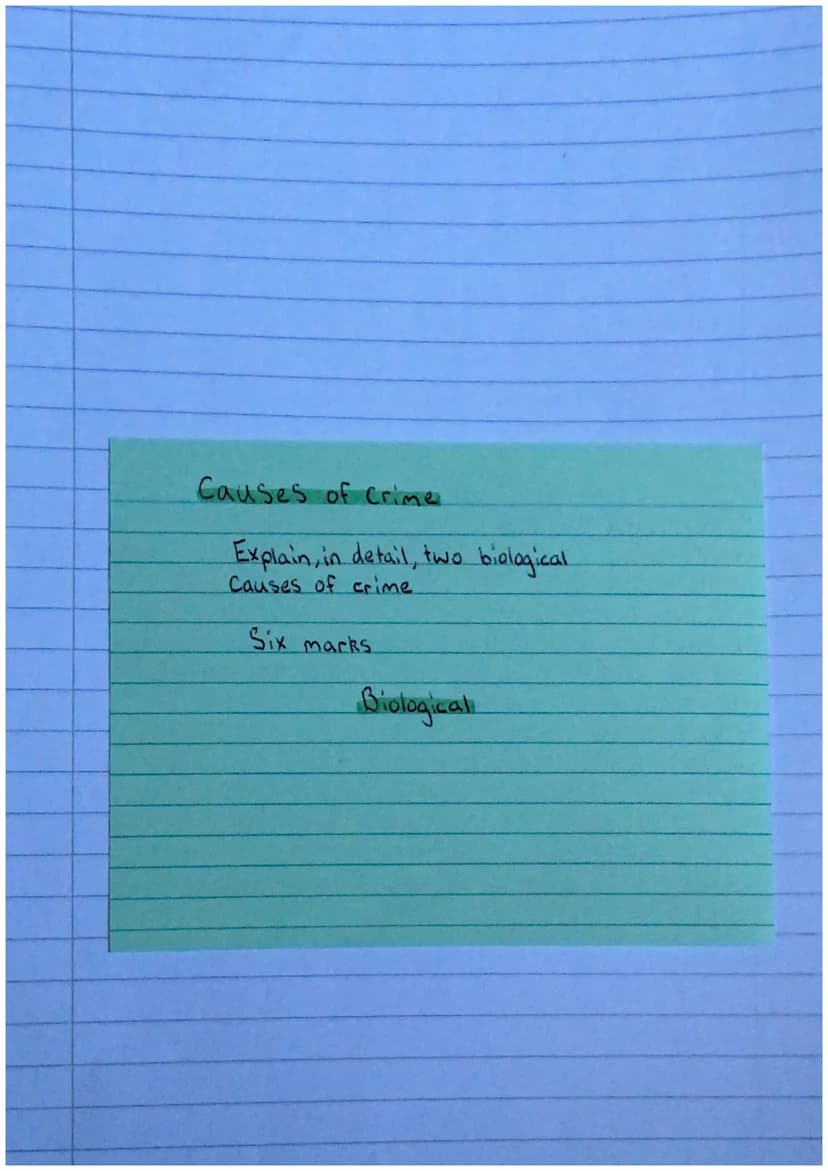 Causes of Crime
Explain, in detail, two biological
Causes of crime
Six marks
Biological